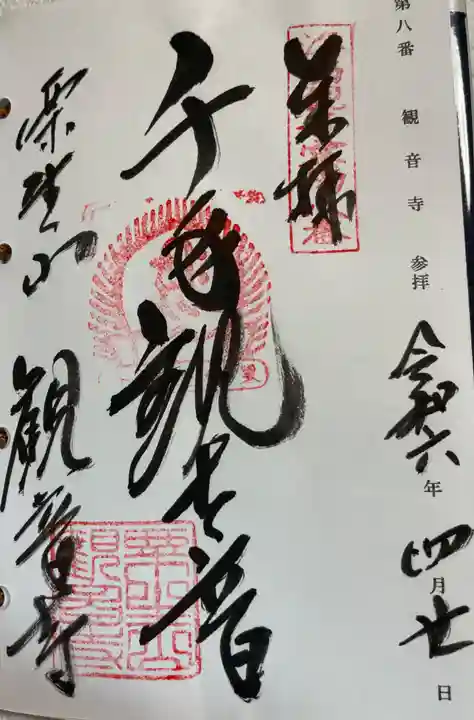 第八番 観音寺 参拝 令和六年 四月廿日
奉拝
千手観世音
観音寺